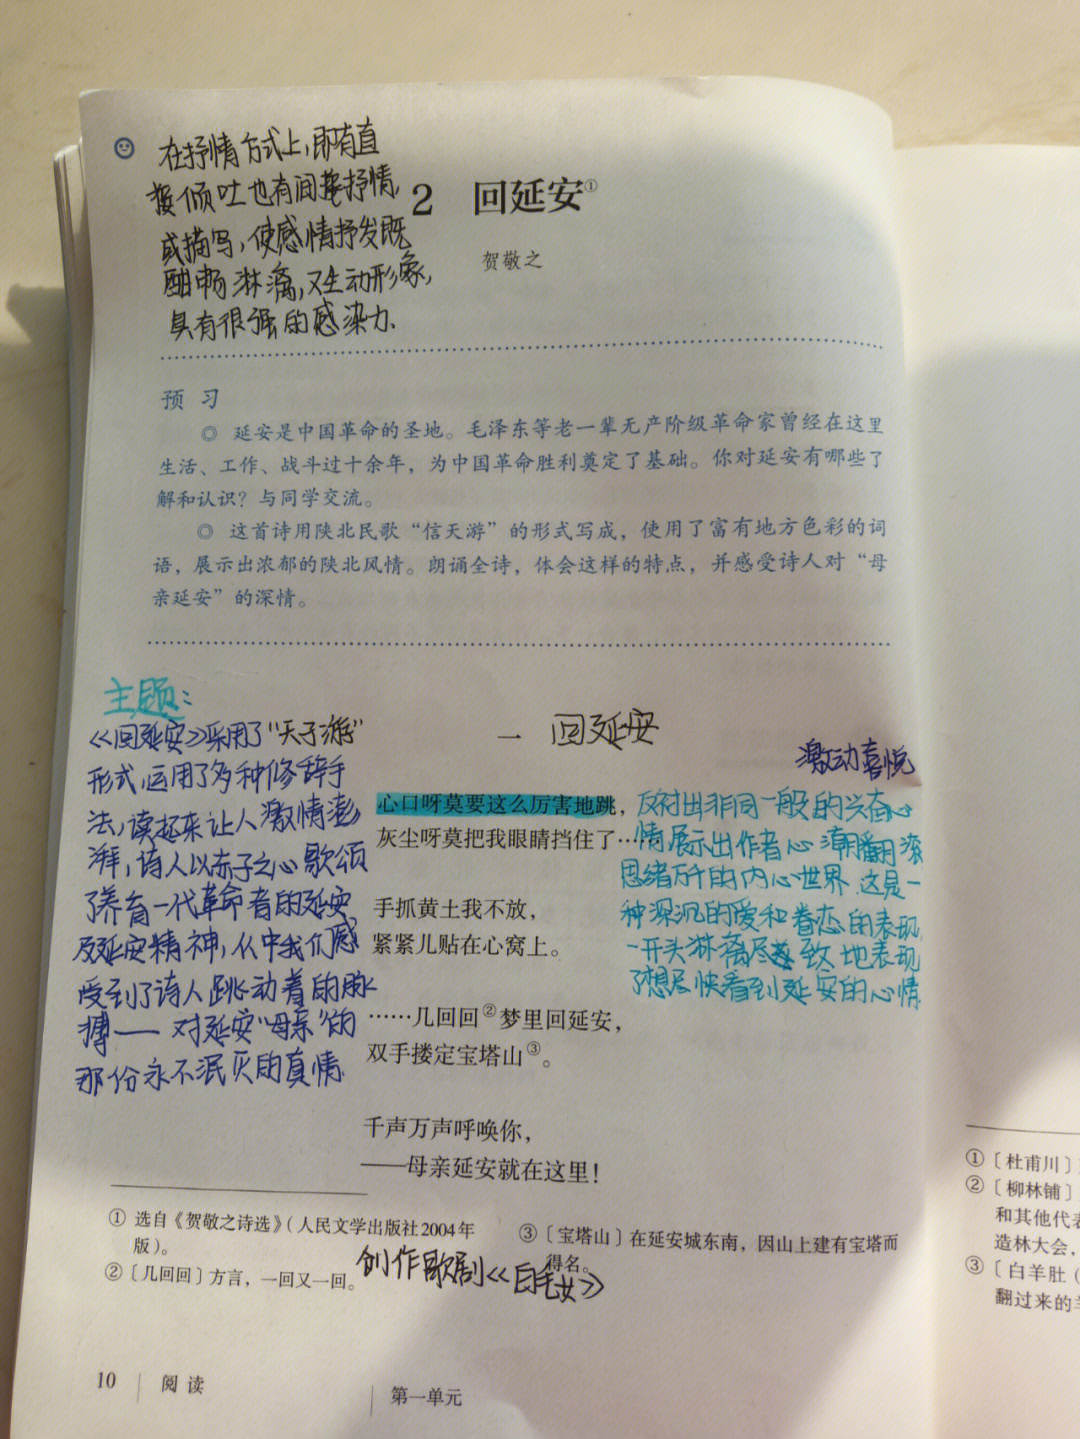 在抒情方式上,即有直
接倾吐也有间接抒情,
或描写,使感情抒发既
酣畅淋漓,又生动形象,
具有很强的感染力.
2 回延安①
贺敬之
预 习
◎ 延安是中国革命的圣地。毛泽东等老一辈无产阶级革命家曾经在这里
生活、工作、战斗过十余年，为中国革命胜利奠定了基础。你对延安有哪些了
解和认识？与同学交流。
◎ 这首诗用陕北民歌“信天游”的形式写成，使用了富有地方色彩的词
语，展示出浓郁的陕北风情。朗诵全诗，体会这样的特点，并感受诗人对“母
亲延安”的深情。
主题:
《回延安》采用了“天子游”
形式,运用了多种修辞手
法,读起来让人激情澎
湃,诗人以赤子之心歌颂
了养育一代革命者的延安
及延安精神,从中我们感
受到了诗人跳动着的脉
搏——对延安“母亲”的
那份永不泯灭的真情.
一 回延安
激动喜悦
心口呀莫要这么厉害地跳，
灰尘呀莫把我眼睛挡住了……
手抓黄土我不放，
紧紧儿贴在心窝上。
……几回回②梦里回延安，
双手搂定宝塔山③。
千声万声呼唤你，
——母亲延安就在这里！
反射出非同一般的兴奋心
情展示出作者心潮翻滚
思绪万千的内心世界.这是一
种深沉的爱和眷恋的表现,
一开头淋漓尽致地表现
了想尽快看到延安的心情
① 选自《贺敬之诗选》（人民文学出版社2004年
版）。
②〔几回回〕方言，一回又一回。
③〔宝塔山〕在延安城东南，因山上建有宝塔而
得名。
创作歌剧《白毛女》
10 阅读
第一单元
①〔杜甫川〕
②〔柳林铺〕
和其他代表
造林大会，
③〔白羊肚（
翻过来的羊